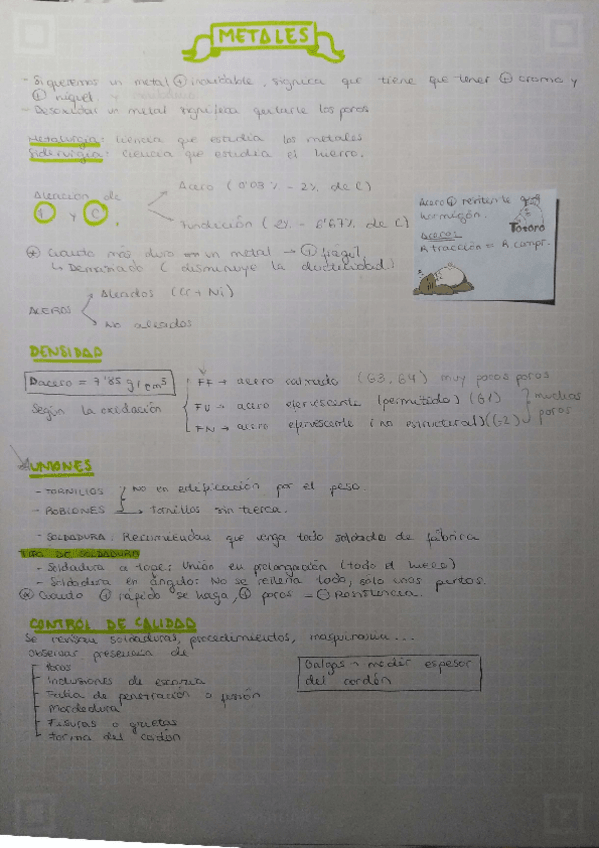 METALES
- Si queremos un metal + inoxidable, significa que tiene que tener + cromo y
+ níquel
- Desoxidar un metal significa quitarle los poros
Metalurgia: ciencia que estudia los metales
Siderurgia: ciencia que estudia el hierro.
Aleación de
F y C.
Acero (0'03% - 2% de C)
Fundición (2% - 6'67% de C)
Acero + resistente
hormigón.
ACEROS
R tracción = R compr.
Totoro
* Cuanto más duro es un metal → + frágil
↳ Demasiado ( disminuye la ductilidad)
ACEROS
Aleados (Cr + Ni)
No aleados
DENSIDAD
Dacero = 7'85 g/cm³
Según la oxidación
FF → acero calmado (G3, G4) muy pocos poros
FU → acero efervescente (permitido) (G1)
FN → acero efervescente (no estructural) (G2)
muchos
poros
UNIONES
- TORNILLOS
- ROBLONES
No en edificación por el peso
→ Tornillos sin tuerca.
- SOLDADURA: Recomiendan que venga todo soldado de fábrica
TIPO DE SOLDADURA
- Soldadura a tope: Unión en prolongación (todo el hueco)
- Soldadura en ángulo: No se rellena todo, sólo unos puntos.
* Cuanto + rápido se haga, + poros → - Resistencia.
CONTROL DE CALIDAD
Se revisan soldaduras, procedimientos, maquinaria...
Observar presencia de
Poros
Inclusiones de escoria
Falta de penetración o fusión
Mordedura
Fisuras o grietas
Forma del cordón
Galgas → medir espesor
del cordón